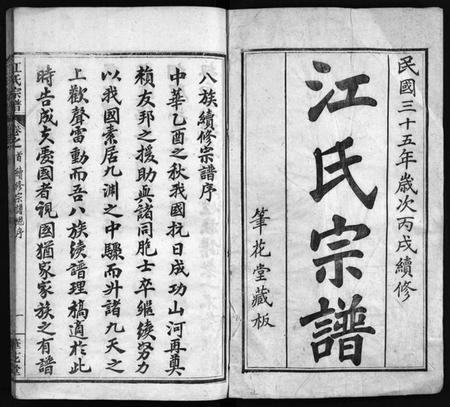 民國三十五年歲次丙戌續修
江氏宗譜
筆花堂藏板
八族續修宗譜序
中華乙酉之秋我國抗日成功山河再奠
賴友邦之援助與諸同胞士卒繼續努力
以我國素居九淵之中驟而升諸九天之
上歡聲雷動而吾八族續譜理稿適於此
時告成夫愛國者視國猶家家族之有譜
江氏宗譜 卷之首 續修宗譜總序 一 筆花堂